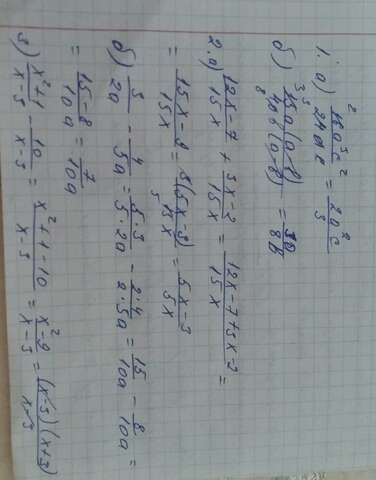 1. а) 14a³c² / 21a²c = 2a²c / 3
б) 15a(a-b) / 40b(a-b) = 3a / 8b
2. а) 12x-7 / 15x + 3x-2 / 15x = 12x-7+3x-2 / 15x =
= 15x-9 / 15x = 3(5x-3) / 15x = 5x-3 / 5x
б) 3 / 2a - 4 / 5a = 5·3 / 5·2a - 2·4 / 2·5a = 15 / 10a - 8 / 10a =
= 15-8 / 10a = 7 / 10a
3) x²+1 / x-3 - 10 / x-3 = x²+1-10 / x-3 = x²-9 / x-3 = (x-3)(x+3) / x-3